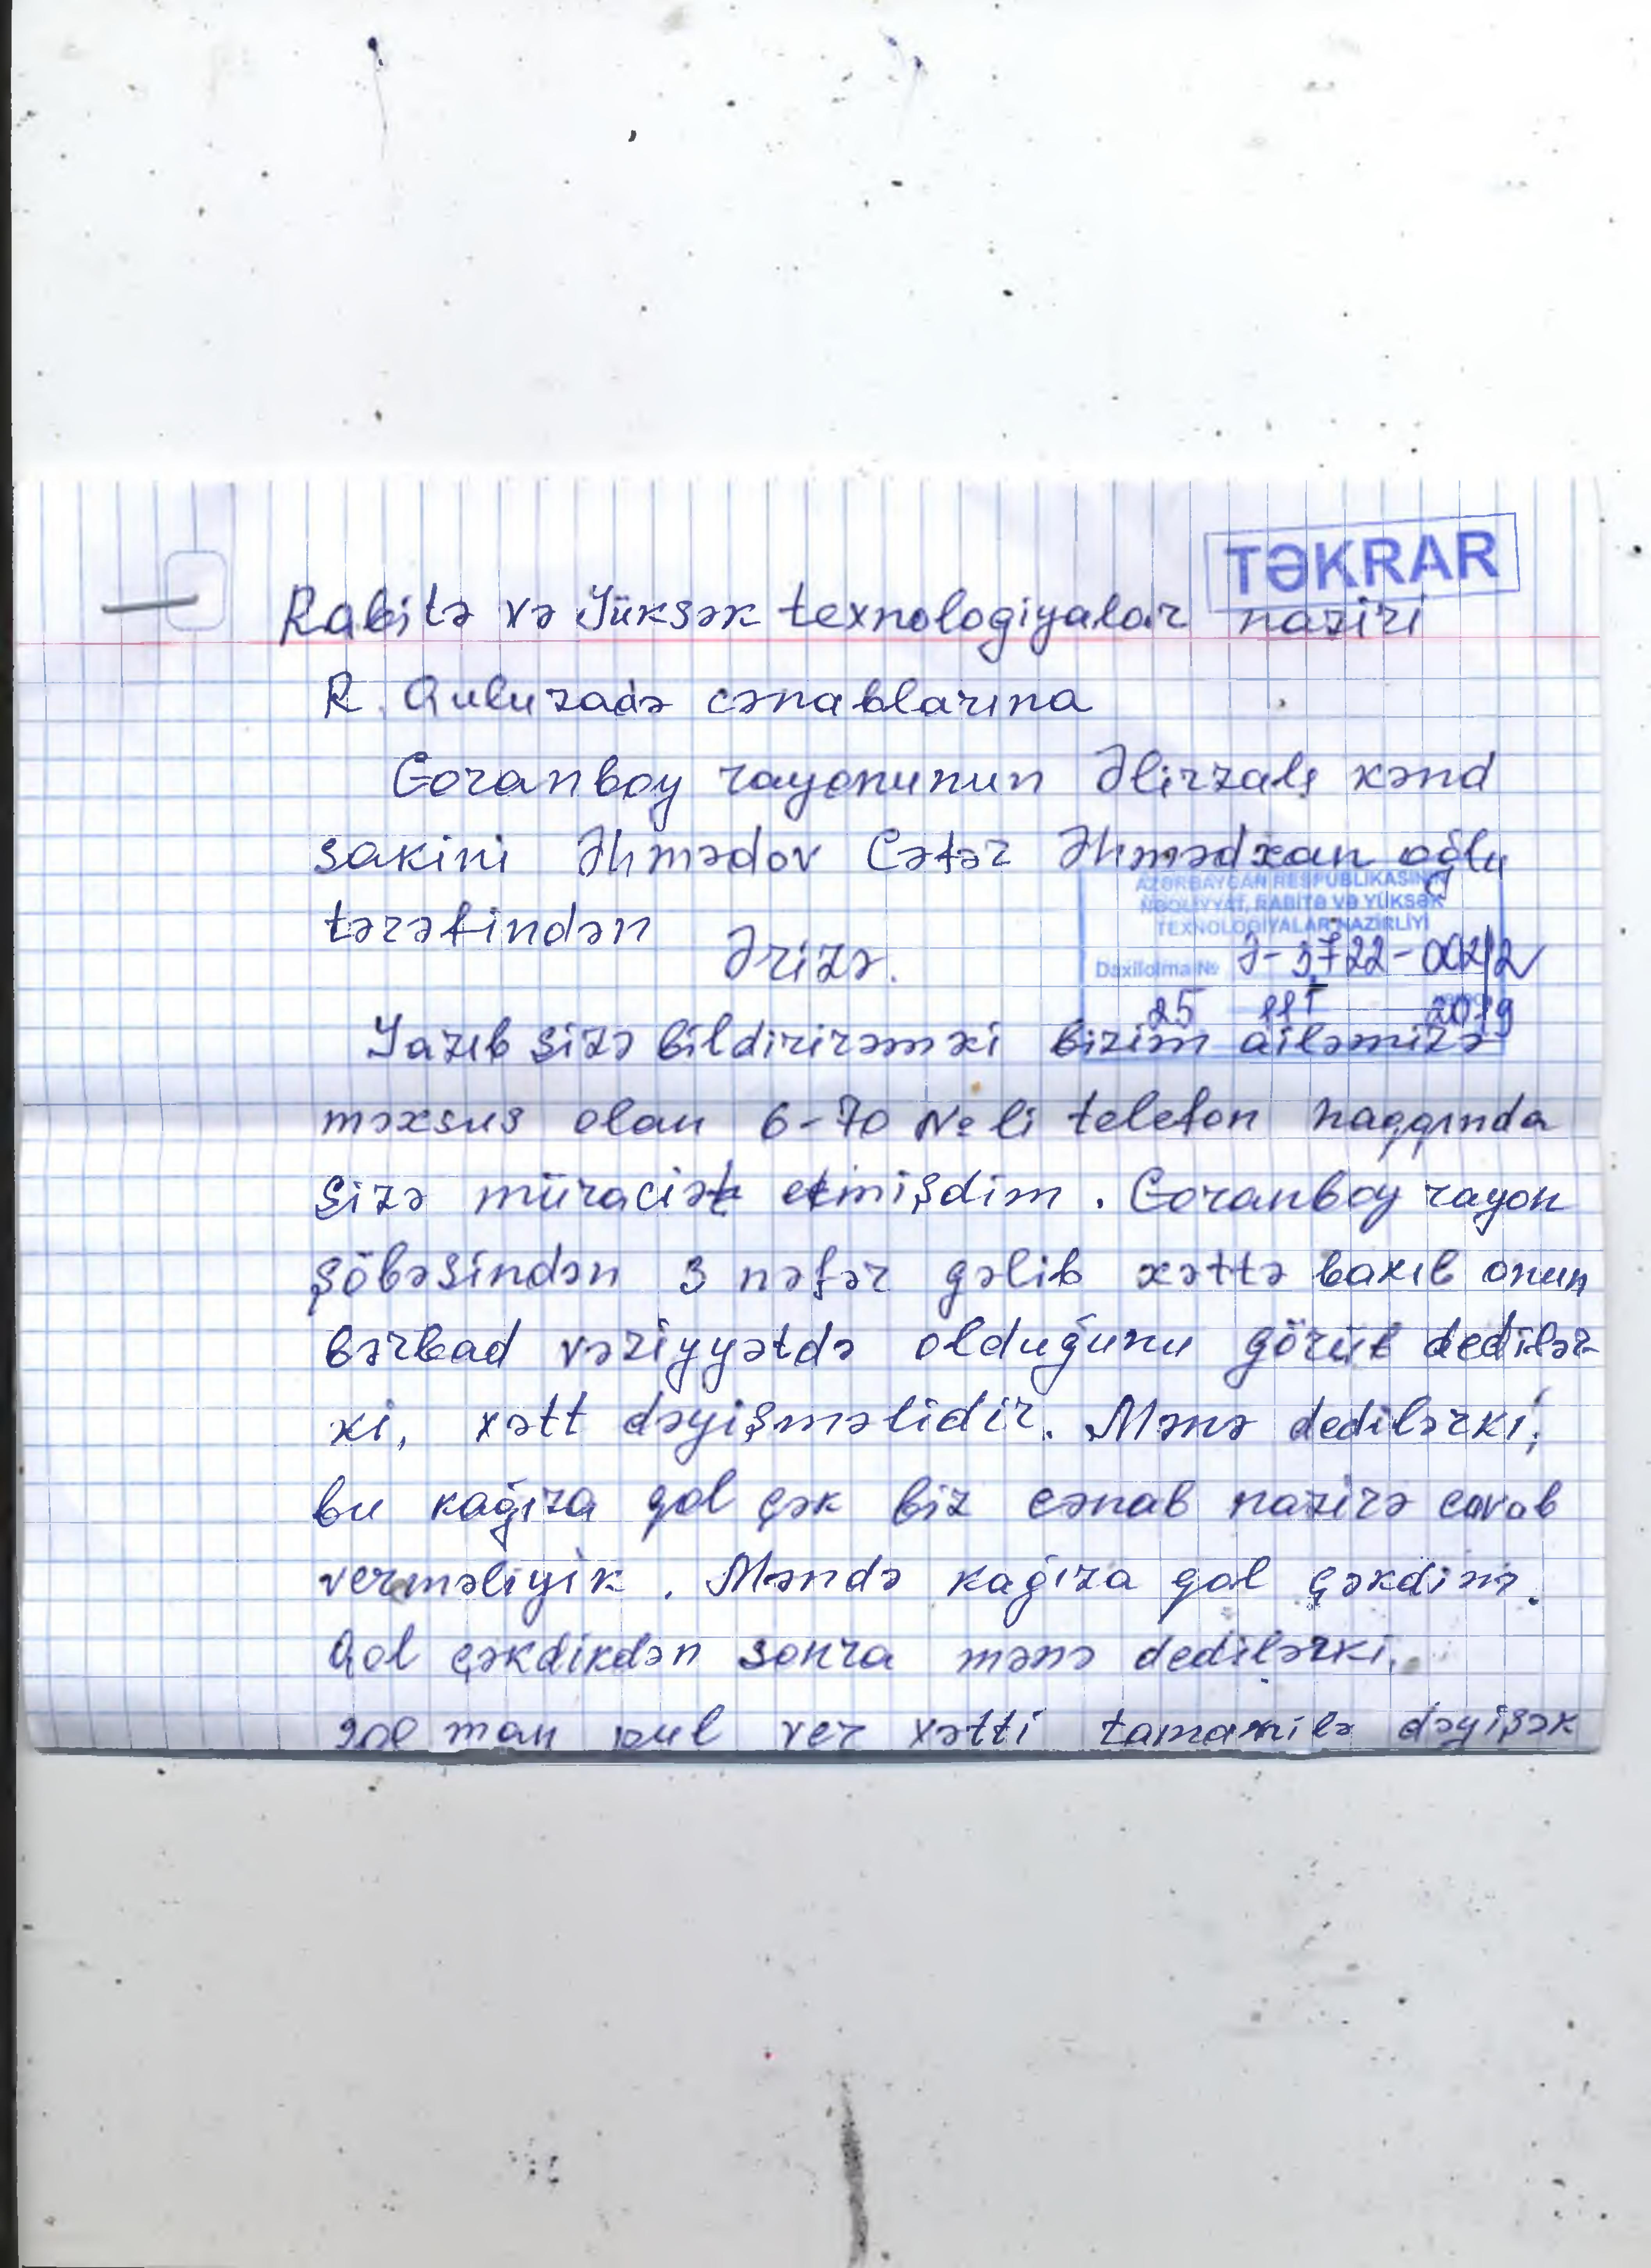 TƏKRAR
Rabitə və Yüksək texnologiyalar naziri
R. Quluzadə cənablarına
Goranboy rayonunun Əlirzalı kənd
sakini Əhmədov Cəfər Əhmədxan oğlu
tərəfindən
AZƏRBAYCAN RESPUBLİKASININ
NƏQLİYYAT, RABİTƏ VƏ YÜKSƏK
TEXNOLOGİYALAR NAZİRLİYİ
Ərizə.
Daxilolma № Ə-3722-002/2
25 III 2019
Yazıb sizə bildirirəmki bizim ailəmizə
məxsus olan 6-70 №li telefon haqqında
sizə müraciət etmişdim. Goranboy rayon
şöbəsindən 3 nəfər gəlib xəttə baxıb onun
bərbad vəziyyətdə olduğunu görüb dedilər
ki, xətt dəyişməlidir. Mənə dedilərki,
bu kağıza qol çək biz cənab nazirə cavab
verməliyik. Məndə kağıza qol çəkdim.
Qol çəkdikdən sonra mənə dedilərki,
200 man pul ver xətti tamamilə dəyişək